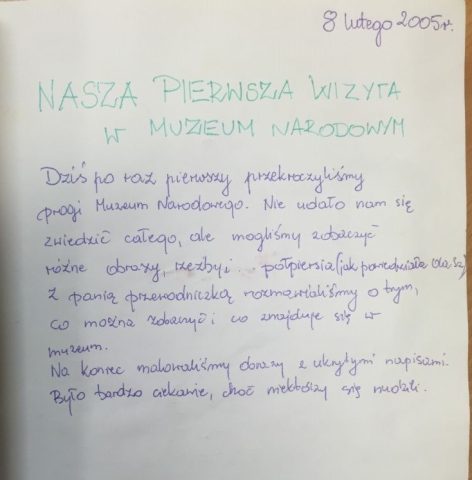 8 lutego 2005r.
NASZA PIERWSZA WIZYTA
W MUZEUM NARODOWYM
Dziś po raz pierwszy przekroczyliśmy
progi Muzeum Narodowego. Nie udało nam się
zwiedzić całego, ale mogliśmy zobaczyć
różne obrazy, rzeźby i półpiersia (jak powiedziała
Z panią przewodniczką rozmawialiśmy o tym,
co można zobaczyć i co znajduje się w
muzeum.
Na koniec malowaliśmy obrazy z ukrytymi napisami.
Było bardzo ciekawie, choć niektórzy się nudzili.